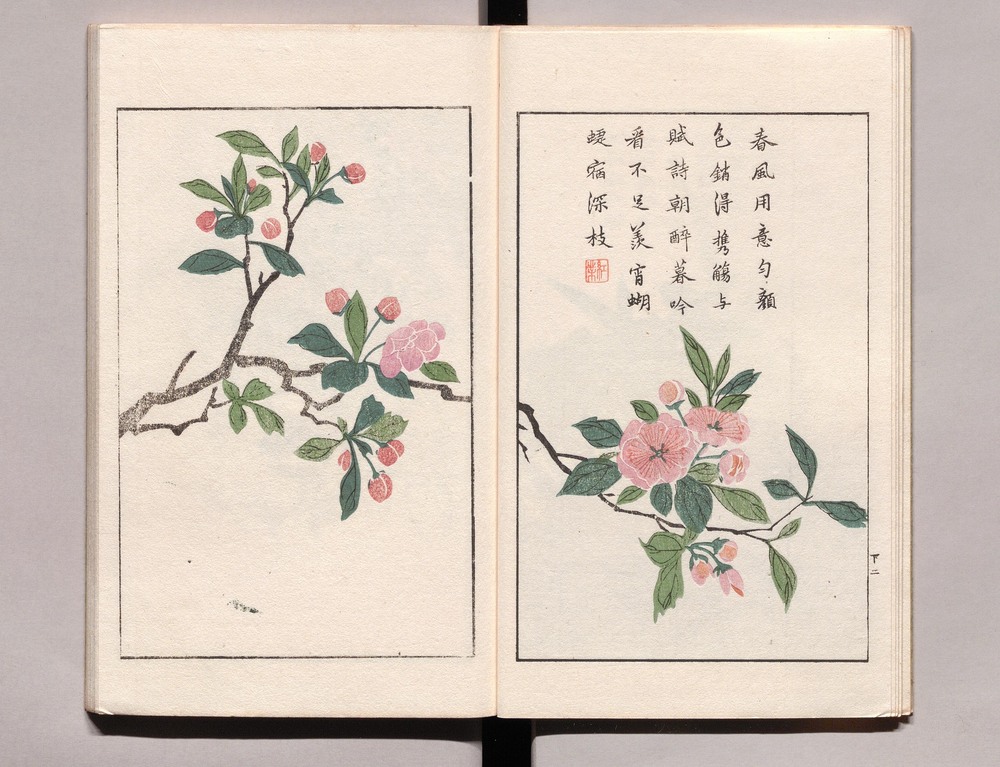 春風用意勻顏
色銷得携觴与
賦詩朝醉暮吟
看不足羨宵蝴
蝶宿深枝
下二